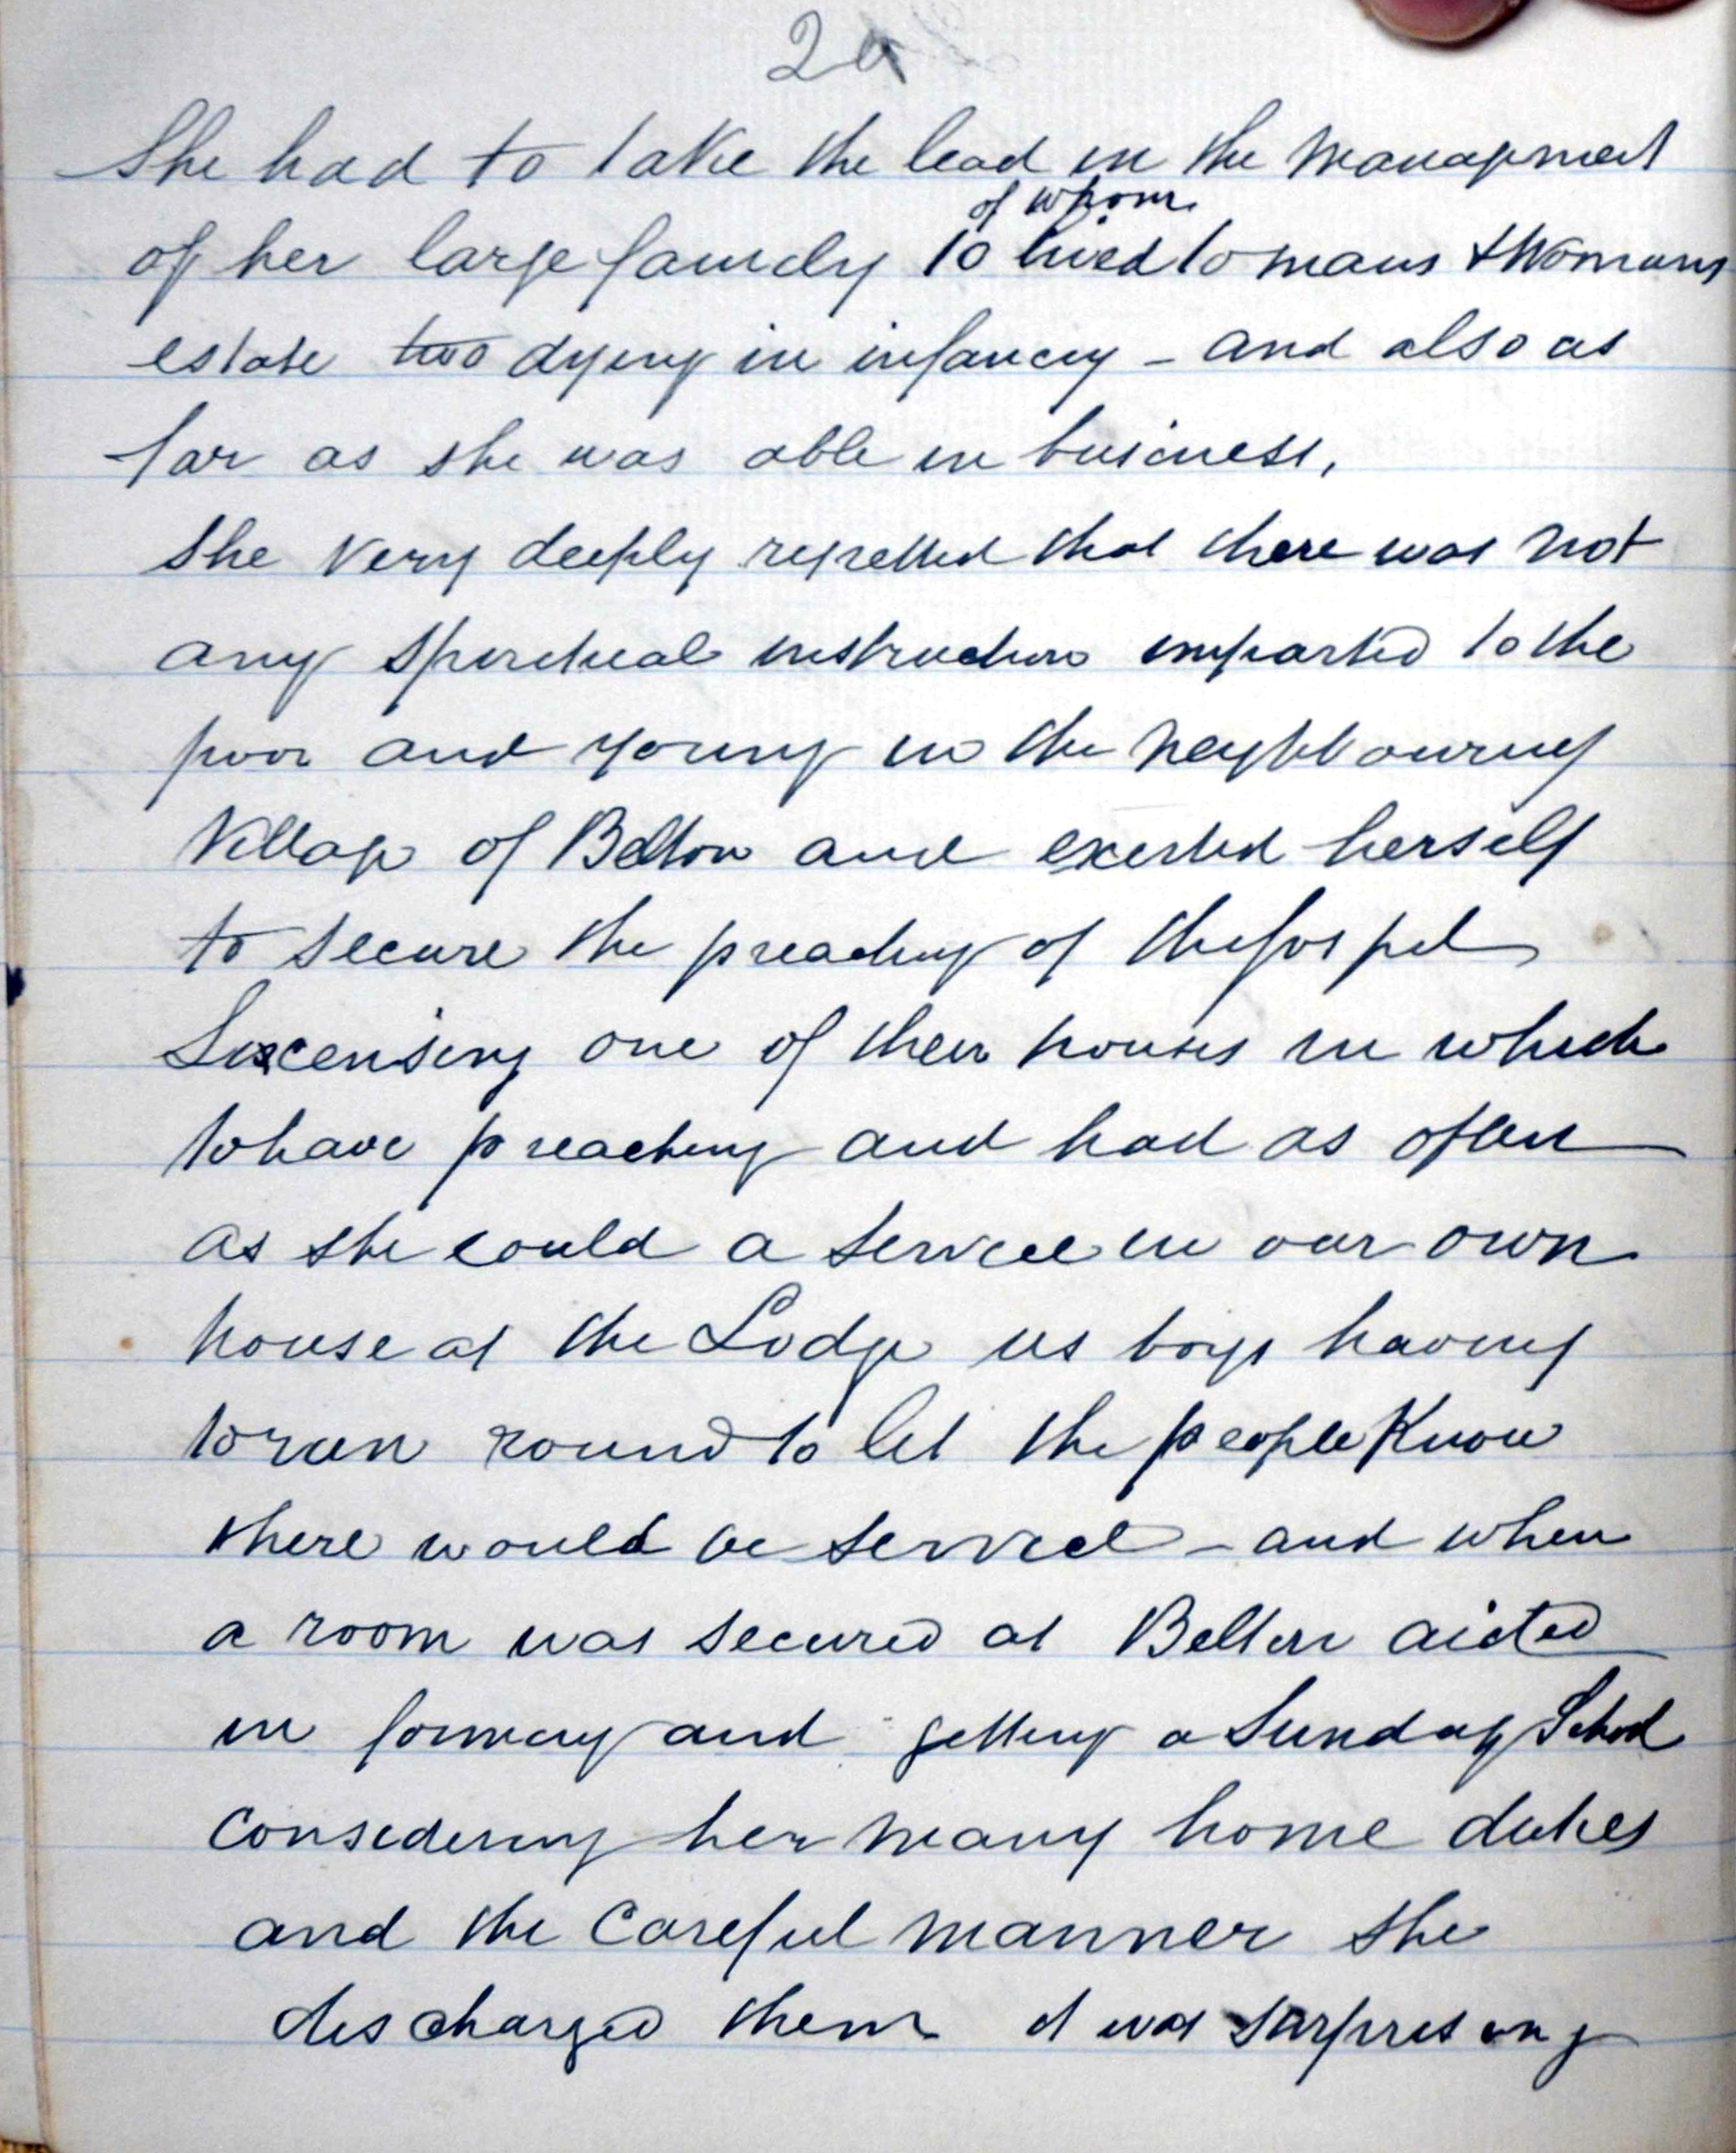 20
She had to take the lead in the management
of whom
of her large family 10 lived to mans & womans
estate two dying in infancy - and also as
far as she was able in business,
She very deeply regretted that there was not
any spiritual instruction imparted to the
poor and young in the neighbouring
Village of Belton and exerted herself
to secure the preaching of the gospel
Liscensing one of their houses in which
to have preaching and had as often
as she could a service in our own
house at the Lodge us boys having
to run round to let the people know
there would be service - and when
a room was secured at Belton aided
in forming and getting a Sunday School
Considering her many home duties
and the Careful manner she
discharged them it was surprising